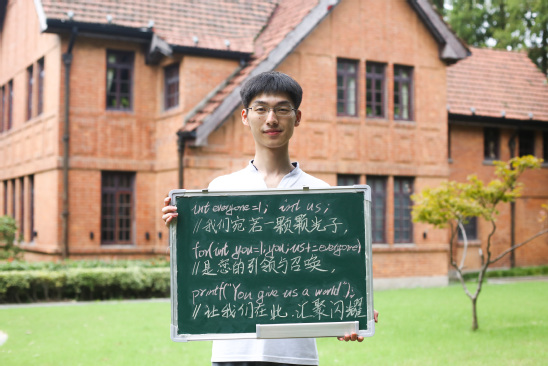 int everyone=1; int us;
//我们宛若一颗颗光子,
for(int you=1;you;us+=everyone)
//是您的引领与召唤,
printf("You give us a world");
//让我们在此,汇聚闪耀